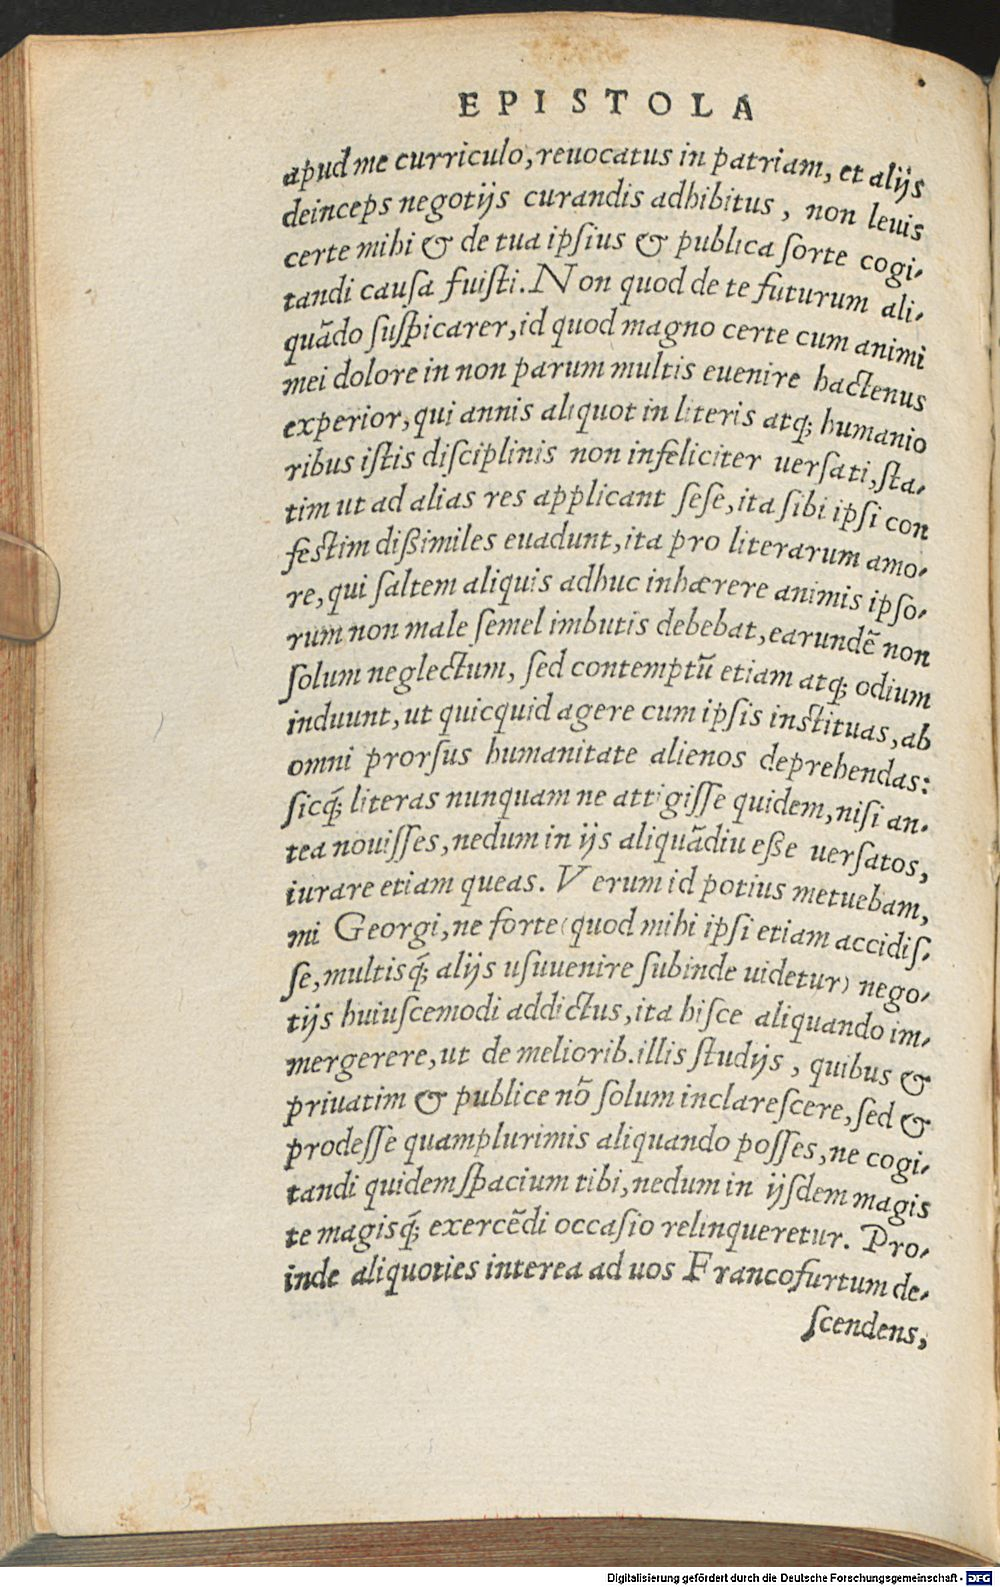 EPISTOLA
apud me curriculo, reuocatus in patriam, et alijs
deinceps negotijs curandis adhibitus, non leuis
certe mihi & de tua ipsius & publica sorte cogi-
tandi causa fuisti. Non quod de te futurum ali-
quãdo suspicarer, id quod magno certe cum animi
mei dolore in non parum multis euenire hactenus
experior, qui annis aliquot in literis atq; humanio
ribus istis disciplinis non infeliciter uersati, sta-
tim ut ad alias res applicant sese, ita sibi ipsi con
festim dißimiles euadunt, ita pro literarum amo-
re, qui saltem aliquis adhuc inhærere animis ipso-
rum non male semel imbutis debebat, earundẽ non
solum neglectum, sed contemptũ etiam atq; odium
induunt, ut quicquid agere cum ipsis instituas, ab
omni prorsus humanitate alienos deprehendas:
sicq́; literas nunquam ne attigisse quidem, nisi an-
tea nouisses, nedum in ijs aliquãdiu eße uersatos,
iurare etiam queas. Verum id potius metuebam,
mi Georgi, ne forte (quod mihi ipsi etiam accidis-
se, multisq́; alijs usuuenire subinde uidetur) nego-
tijs huiuscemodi addictus, ita hisce aliquando im-
mergerere, ut de meliorib. illis studijs, quibus &
priuatim & publice nõ solum inclarescere, sed &
prodesse quamplurimis aliquando posses, ne cogi-
tandi quidem spacium tibi, nedum in ijsdem magis
te magisq́; exercẽdi occasio relinqueretur. Pro-
inde aliquoties interea ad uos Francofurtum de-
scendens,
Digitalisierung gefördert durch die Deutsche Forschungsgemeinschaft - DFG